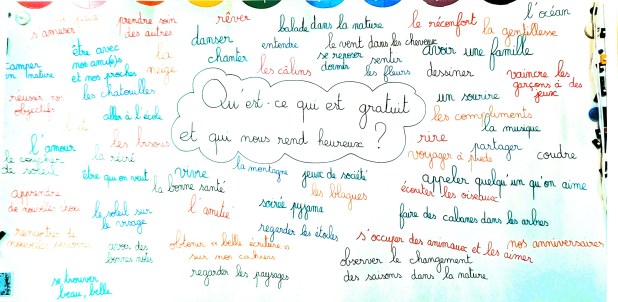 s'amuser
prendre soin
des autres
rêver
balade dans la nature
le réconfort
la gentillesse
l'océan
camper
en nature
être avec
nos ami(e)s
et nos proches
la
neige
danser
chanter
entendre
le vent dans les cheveux
se reposer
dormir
sentir
les fleurs
avoir une famille
les câlins
dessiner
vaincre les
garçons à des
jeux
les chatouilles
réussir nos
objectifs
aller à l'école
Qu'est-ce qui est gratuit
et qui nous rend heureux ?
un sourire
les compliments
la musique
l'amour
les bisous
rire
partager
le coucher
de soleil
voyager à pieds
coudre
être qu'on veut
vivre
la montagne
jeux de société
appeler quelqu'un qu'on aime
la bonne santé
les blagues
écouter les oiseaux
apprendre
de nouvelles
le soleil sur
le visage
l'amitié
soirée pyjama
faire des cabanes dans les arbres
regarder les étoiles
rencontrer de
avoir des
bonnes notes
obtenir « belle écriture »
sur nos cahiers
s'occuper des animaux et les aimer
nos anniversaires
regarder les paysages
observer le changement
des saisons dans la nature
se trouver
beau, belle